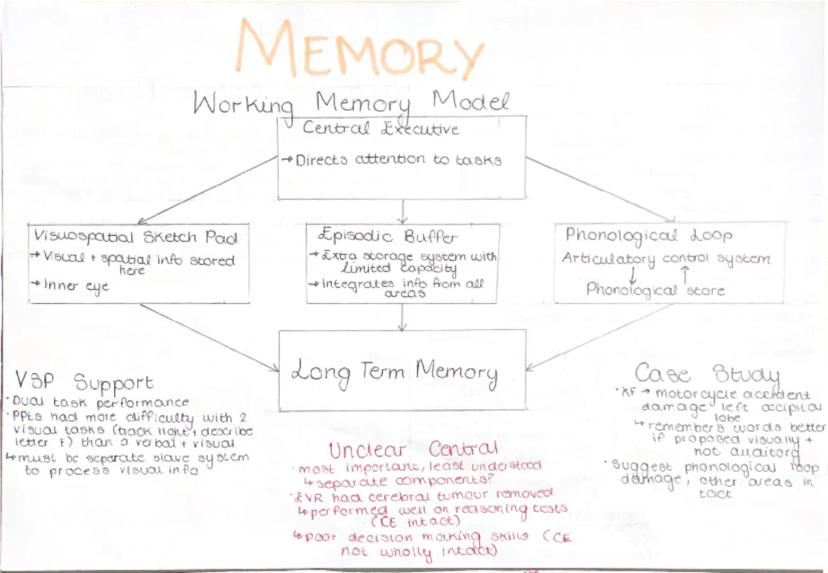 MEMORY
Working Memory Model
Central Executive
→ Directs attention to tasks
Visuospatial Sketch Pad
→ Visual + spatial info stored
here
→ Inner eye
Episodic Buffer
→ Extra storage system with
limited capacity
→ Integrates info from all
areas
Phonological Loop
Articulatory control system
↓ ↑
Phonological store
Long Term Memory
VSP Support
· Dual task performance
· PPts had more difficulty with 2
visual tasks (track light + describe
letter F) than a verbal + visual
↳ must be separate slave system
to process visual info
Unclear Central
· most important, least understood
↳ separate components?
· EVR had cerebral tumour removed
↳ performed well on reasoning tests
(CE intact)
↳ poor decision making skills (CE
not wholly intact)
Case Study
· KF → motorcycle accident
damage left occipital
lobe
↳ remembers words better
if proposed visually +
not auditory
· Suggest phonological loop
damage, other areas in
tact